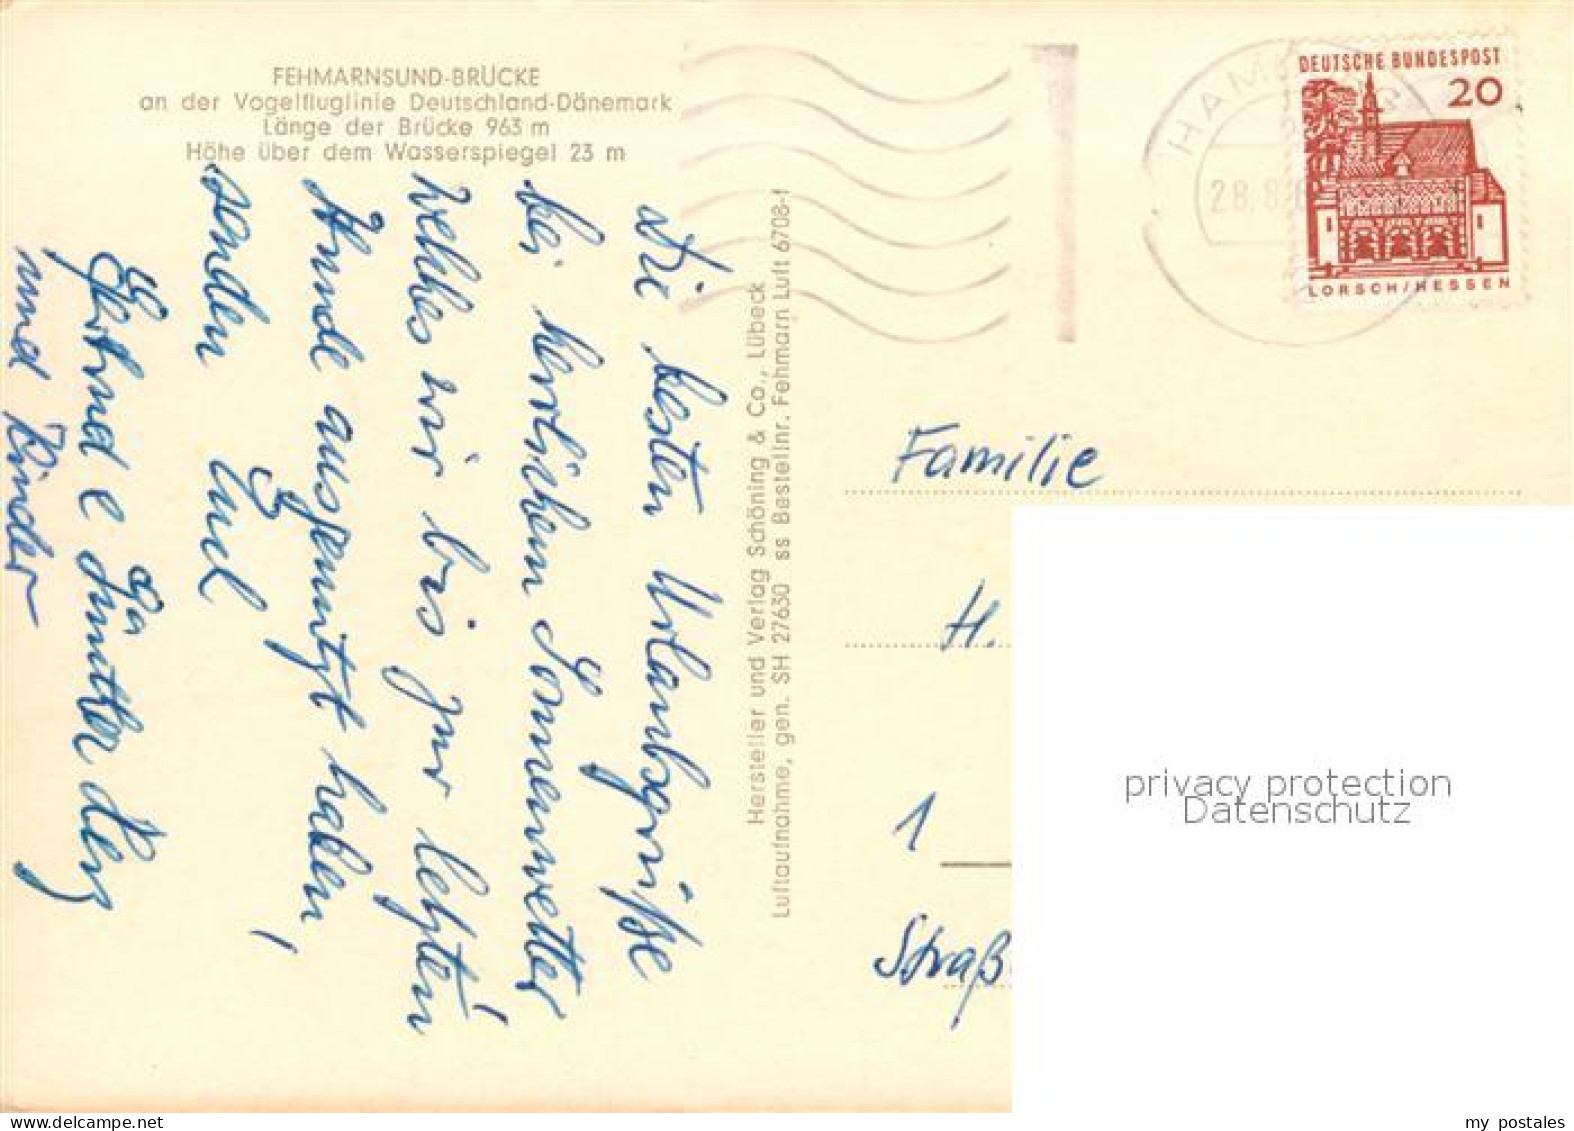 FEHMARNSUND-BRÜCKE
an der Vogelfluglinie Deutschland-Dänemark
Länge der Brücke 963 m
Höhe über dem Wasserspiegel 23 m
Die besten Urlaubsgrüße
bei herrlichem Sonnenwetter
welches wir bis zur letzten
Stunde ausgenutzt haben,
senden
und Kinder
Hersteller und Verlag Schöning & Co., Lübeck
Luftaufnahme, gen. SH 27630 ss Bestellnr. Fehmarn Luft 6708-1
HAM
28.8.6
DEUTSCHE BUNDESPOST
20
LORSCH/HESSEN
Familie
H.
1
Straß
privacy protection
Datenschutz
my postales